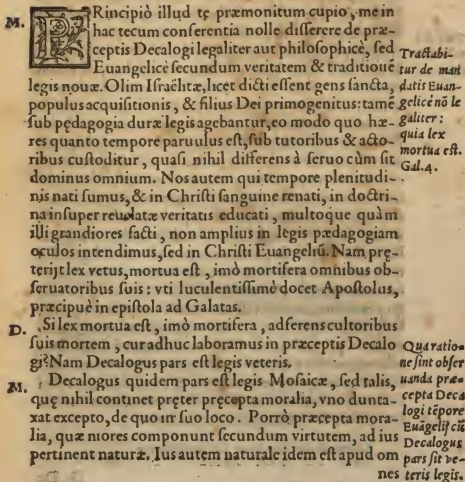 M. PRincipiò illud tę præmonitum cupio, me in
hac tecum conferentia nolle disserere de præ-
ceptis Decalogi legaliter aut philosophicè, sed
Euangelicè secundum veritatem & traditionẽ
legis nouæ. Olim Israëlitæ, licet dicti essent gens sancta,
populus acquisitionis, & filius Dei primogenitus: tamẽ
sub pędagogia duræ legis agebantur, eo modo quo hæ-
res quanto tempore paruulus est, sub tutoribus & acto-
ribus custoditur, quasi nihil differens à seruo cùm sit
dominus omnium. Nos autem qui tempore plenitudi-
nis nati sumus, & in Christi sanguine renati, in doctri-
na insuper reuelatæ veritatis educati, multoque quàm
illi grandiores facti, non amplius in legis pædagogiam
oculos intendimus, sed in Christi Euangeliũ. Nam prę-
terijt lex vetus, mortua est, imò mortifera omnibus ob-
seruatoribus suis: vti luculentissimè docet Apostolus,
præcipuè in epistola ad Galatas.
D. Si lex mortua est, imò mortifera, adferens cultoribus
suis mortem, cur adhuc laboramus in præceptis Decalo
gi? Nam Decalogus pars est legis veteris.
M. Decalogus quidem pars est legis Mosaicæ, sed talis,
quę nihil continet pręter pręcepta moralia, vno dunta-
xat excepto, de quo in suo loco. Porrò præcepta mora-
lia, quæ mores componunt secundum virtutem, ad ius
pertinent naturæ. Ius autem naturale idem est apud om
nes
Tractabi-
tur de man
datis Euan-
gelicè nõ le
galiter:
quia lex
mortua est.
Gal. 4.
Qua ratio-
ne sint obser
uanda præ-
cepta Deca
logi tẽpore
Euãgelij cũ
Decalogus
pars sit ve-
teris legis.